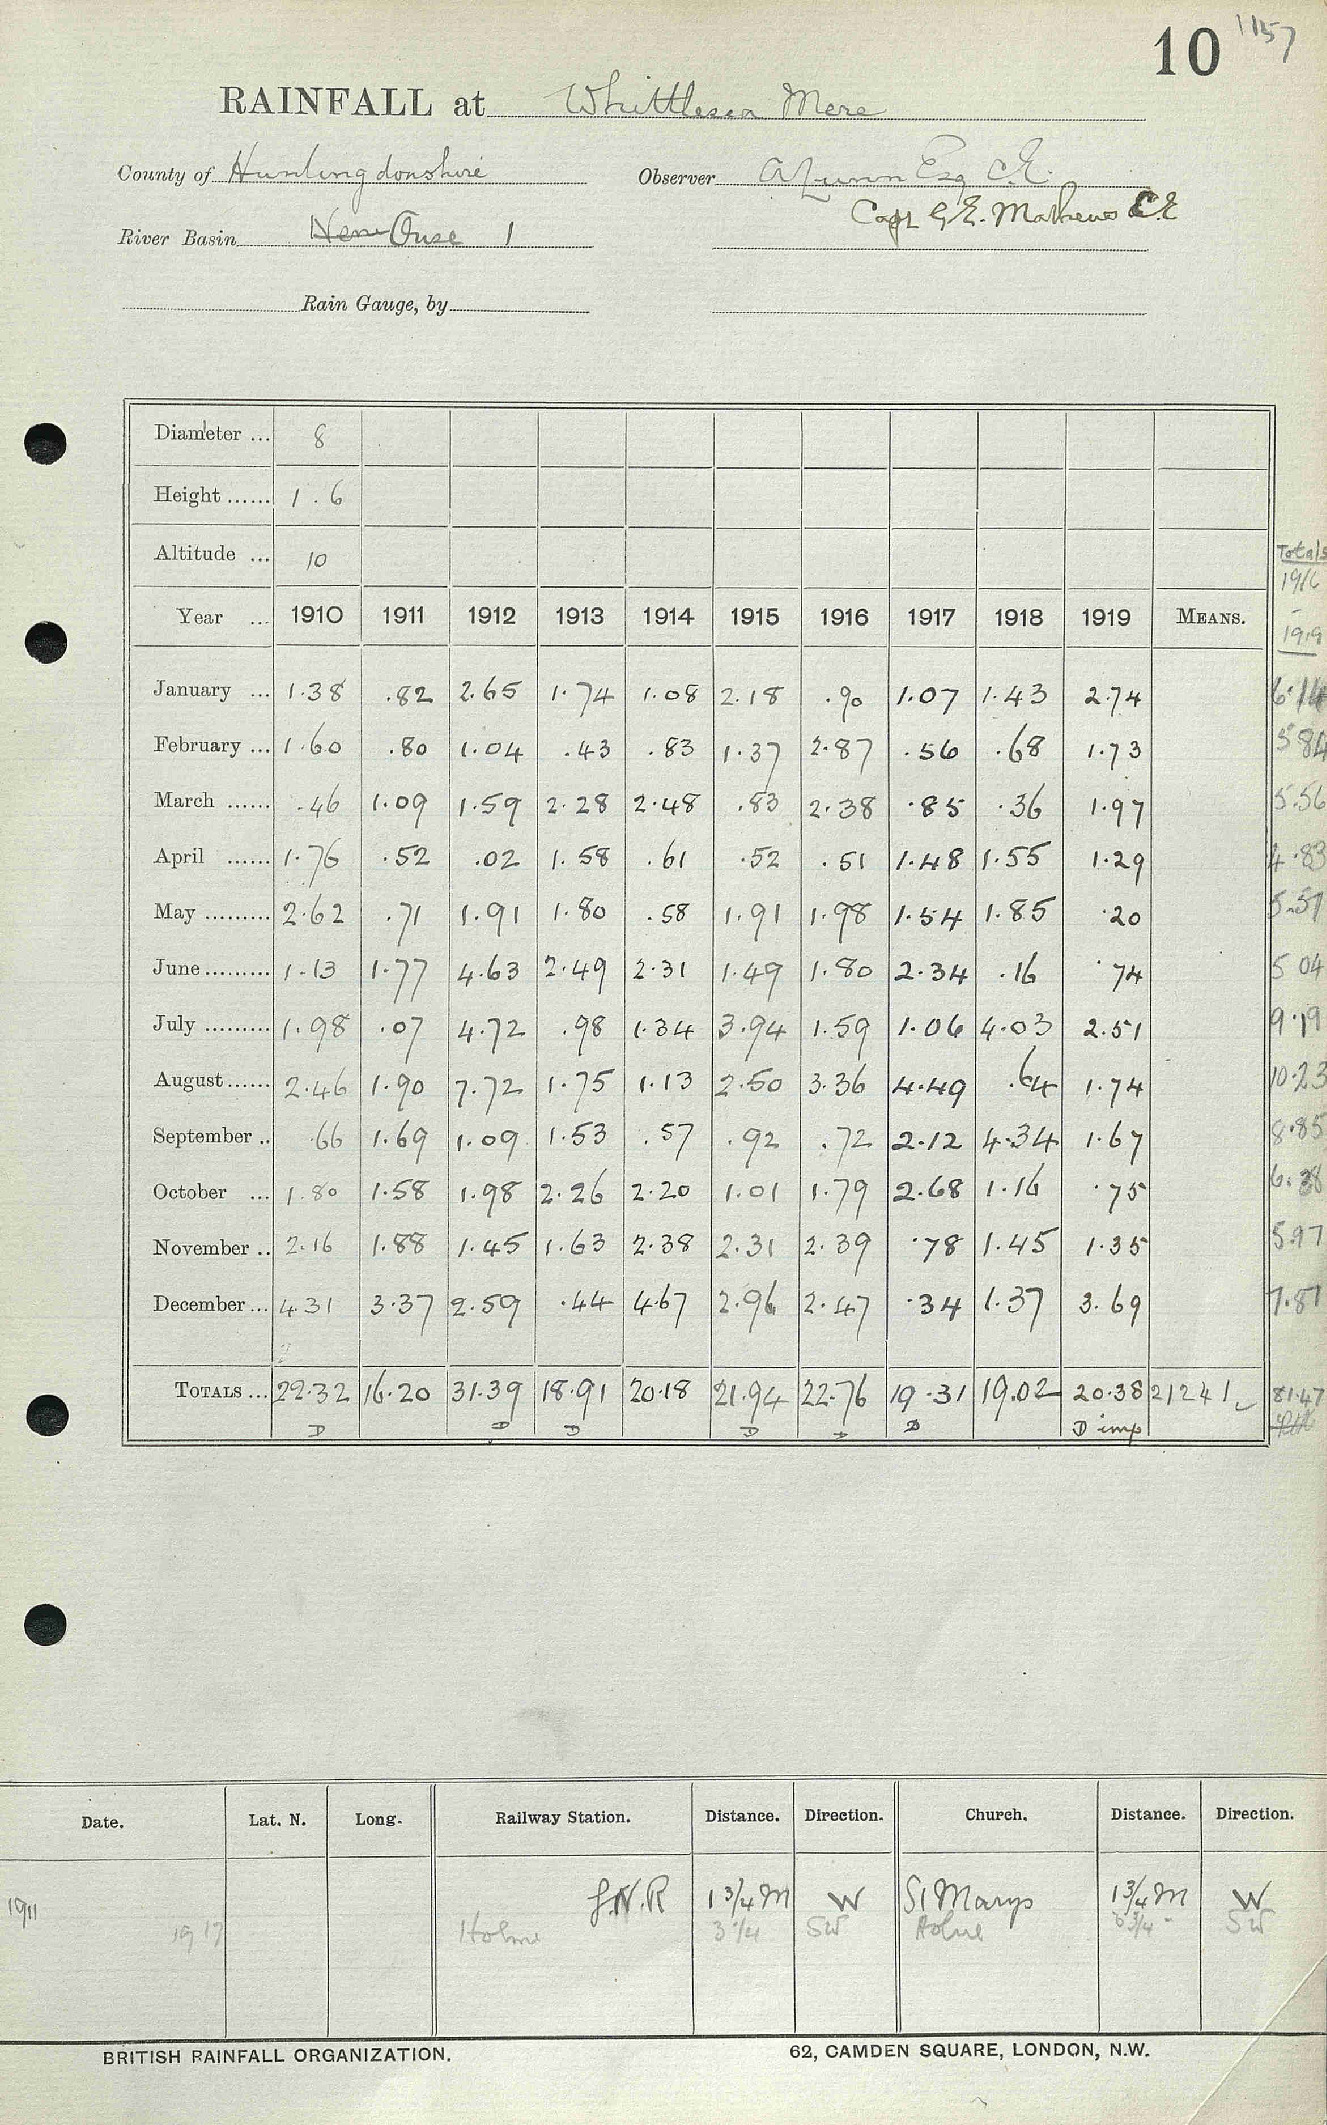 10 1157
RAINFALL at Whittlesea Mere
County of Huntingdonshire Observer A Lunn Esq C.E.
Capt G.E. Mathews C.E
River Basin Nene Ouse 1
Rain Gauge, by
Diameter ... 8
Height ...... 1.6
Altitude ... 10
Totals
1916
-
1919
Year ... 1910 1911 1912 1913 1914 1915 1916 1917 1918 1919 MEANS.
January ... 1.38 .82 2.65 1.74 1.08 2.18 .90 1.07 1.43 2.74 6.14
February ... 1.60 .80 1.04 .43 .83 1.37 2.87 .56 .68 1.73 5 84
March ...... .46 1.09 1.59 2.28 2.48 .83 2.38 .85 .36 1.97 5.56
April ...... 1.76 .52 .02 1.58 .61 .52 .51 1.48 1.55 1.29 4.83
May ......... 2.62 .71 1.91 1.80 .58 1.91 1.98 1.54 1.85 .20 5.57
June ......... 1.13 1.77 4.63 2.49 2.31 1.49 1.80 2.34 .16 .74 5 04
July ......... 1.98 .07 4.72 .98 1.34 3.94 1.59 1.06 4.03 2.51 9.19
August ...... 2.46 1.90 7.72 1.75 1.13 2.50 3.36 4.49 .64 1.74 10.23
September .. .66 1.69 1.09 1.53 .57 .92 .72 2.12 4.34 1.67 8.85
October ... 1.80 1.58 1.98 2.26 2.20 1.01 1.79 2.68 1.16 .75 6.38
November .. 2.16 1.88 1.45 1.63 2.38 2.31 2.39 .78 1.45 1.35 5.97
December ... 4 31 3.37 2.59 .44 4.67 2.96 2.47 .34 1.37 3.69 7.87
TOTALS ... 22.32 16.20 31.39 18.91 20.18 21.94 22.76 19.31 19.02 20.38 212 41 81.47
D D D D D D D imp
Date. Lat. N. Long. Railway Station. Distance. Direction. Church. Distance. Direction.
1911 G.N.R 1 3/4 M W St Marys 1 3/4 M W
1917 Holme 3 1/4 SW Holme SW
BRITISH RAINFALL ORGANIZATION. 62, CAMDEN SQUARE, LONDON, N.W.